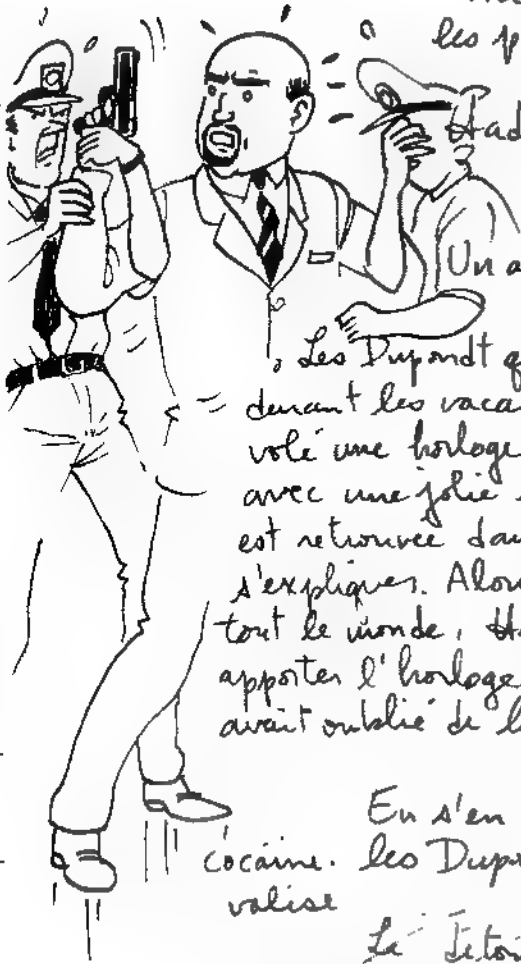 les p
Had
Un a
Les Dupondt q
durant les vacan
volé une horloge
avec une jolie
est retrouvée dan
s'expliquer. Alors
tout le monde. Ha
apporter l'horloge
avait oublié de l
En s'en
cocaïne. les Dupo
valise
Le